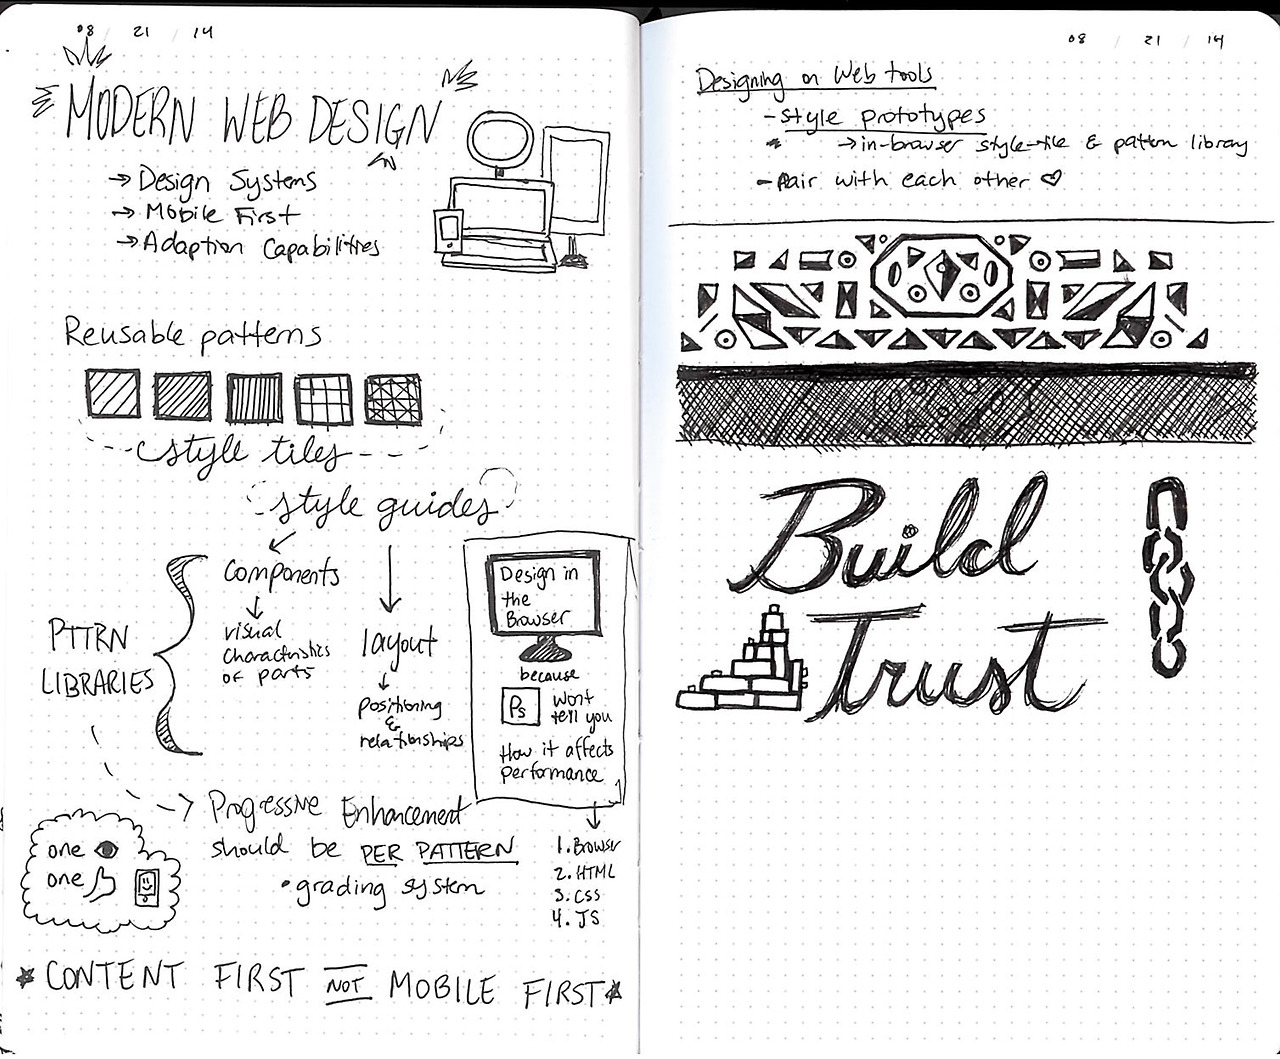 08 / 21 / 14
MODERN WEB DESIGN
→ Design Systems
→ Mobile First
→ Adaption Capabilities
Reusable patterns
style tiles
style guides
components
visual
characteristics
of parts
layout
positioning
&
relationships
PTTRN
LIBRARIES
Design in
the
Browser
because
Ps
won't
tell you
How it affects
performance
1. Browser
2. HTML
3. CSS
4. JS
Progressive Enhancement
should be PER PATTERN
• grading system
one
one
CONTENT FIRST NOT MOBILE FIRST
08 / 21 / 14
Designing on Web tools
- style prototypes
→ in-browser style-tile & pattern library
- Pair with each other
Build
Trust